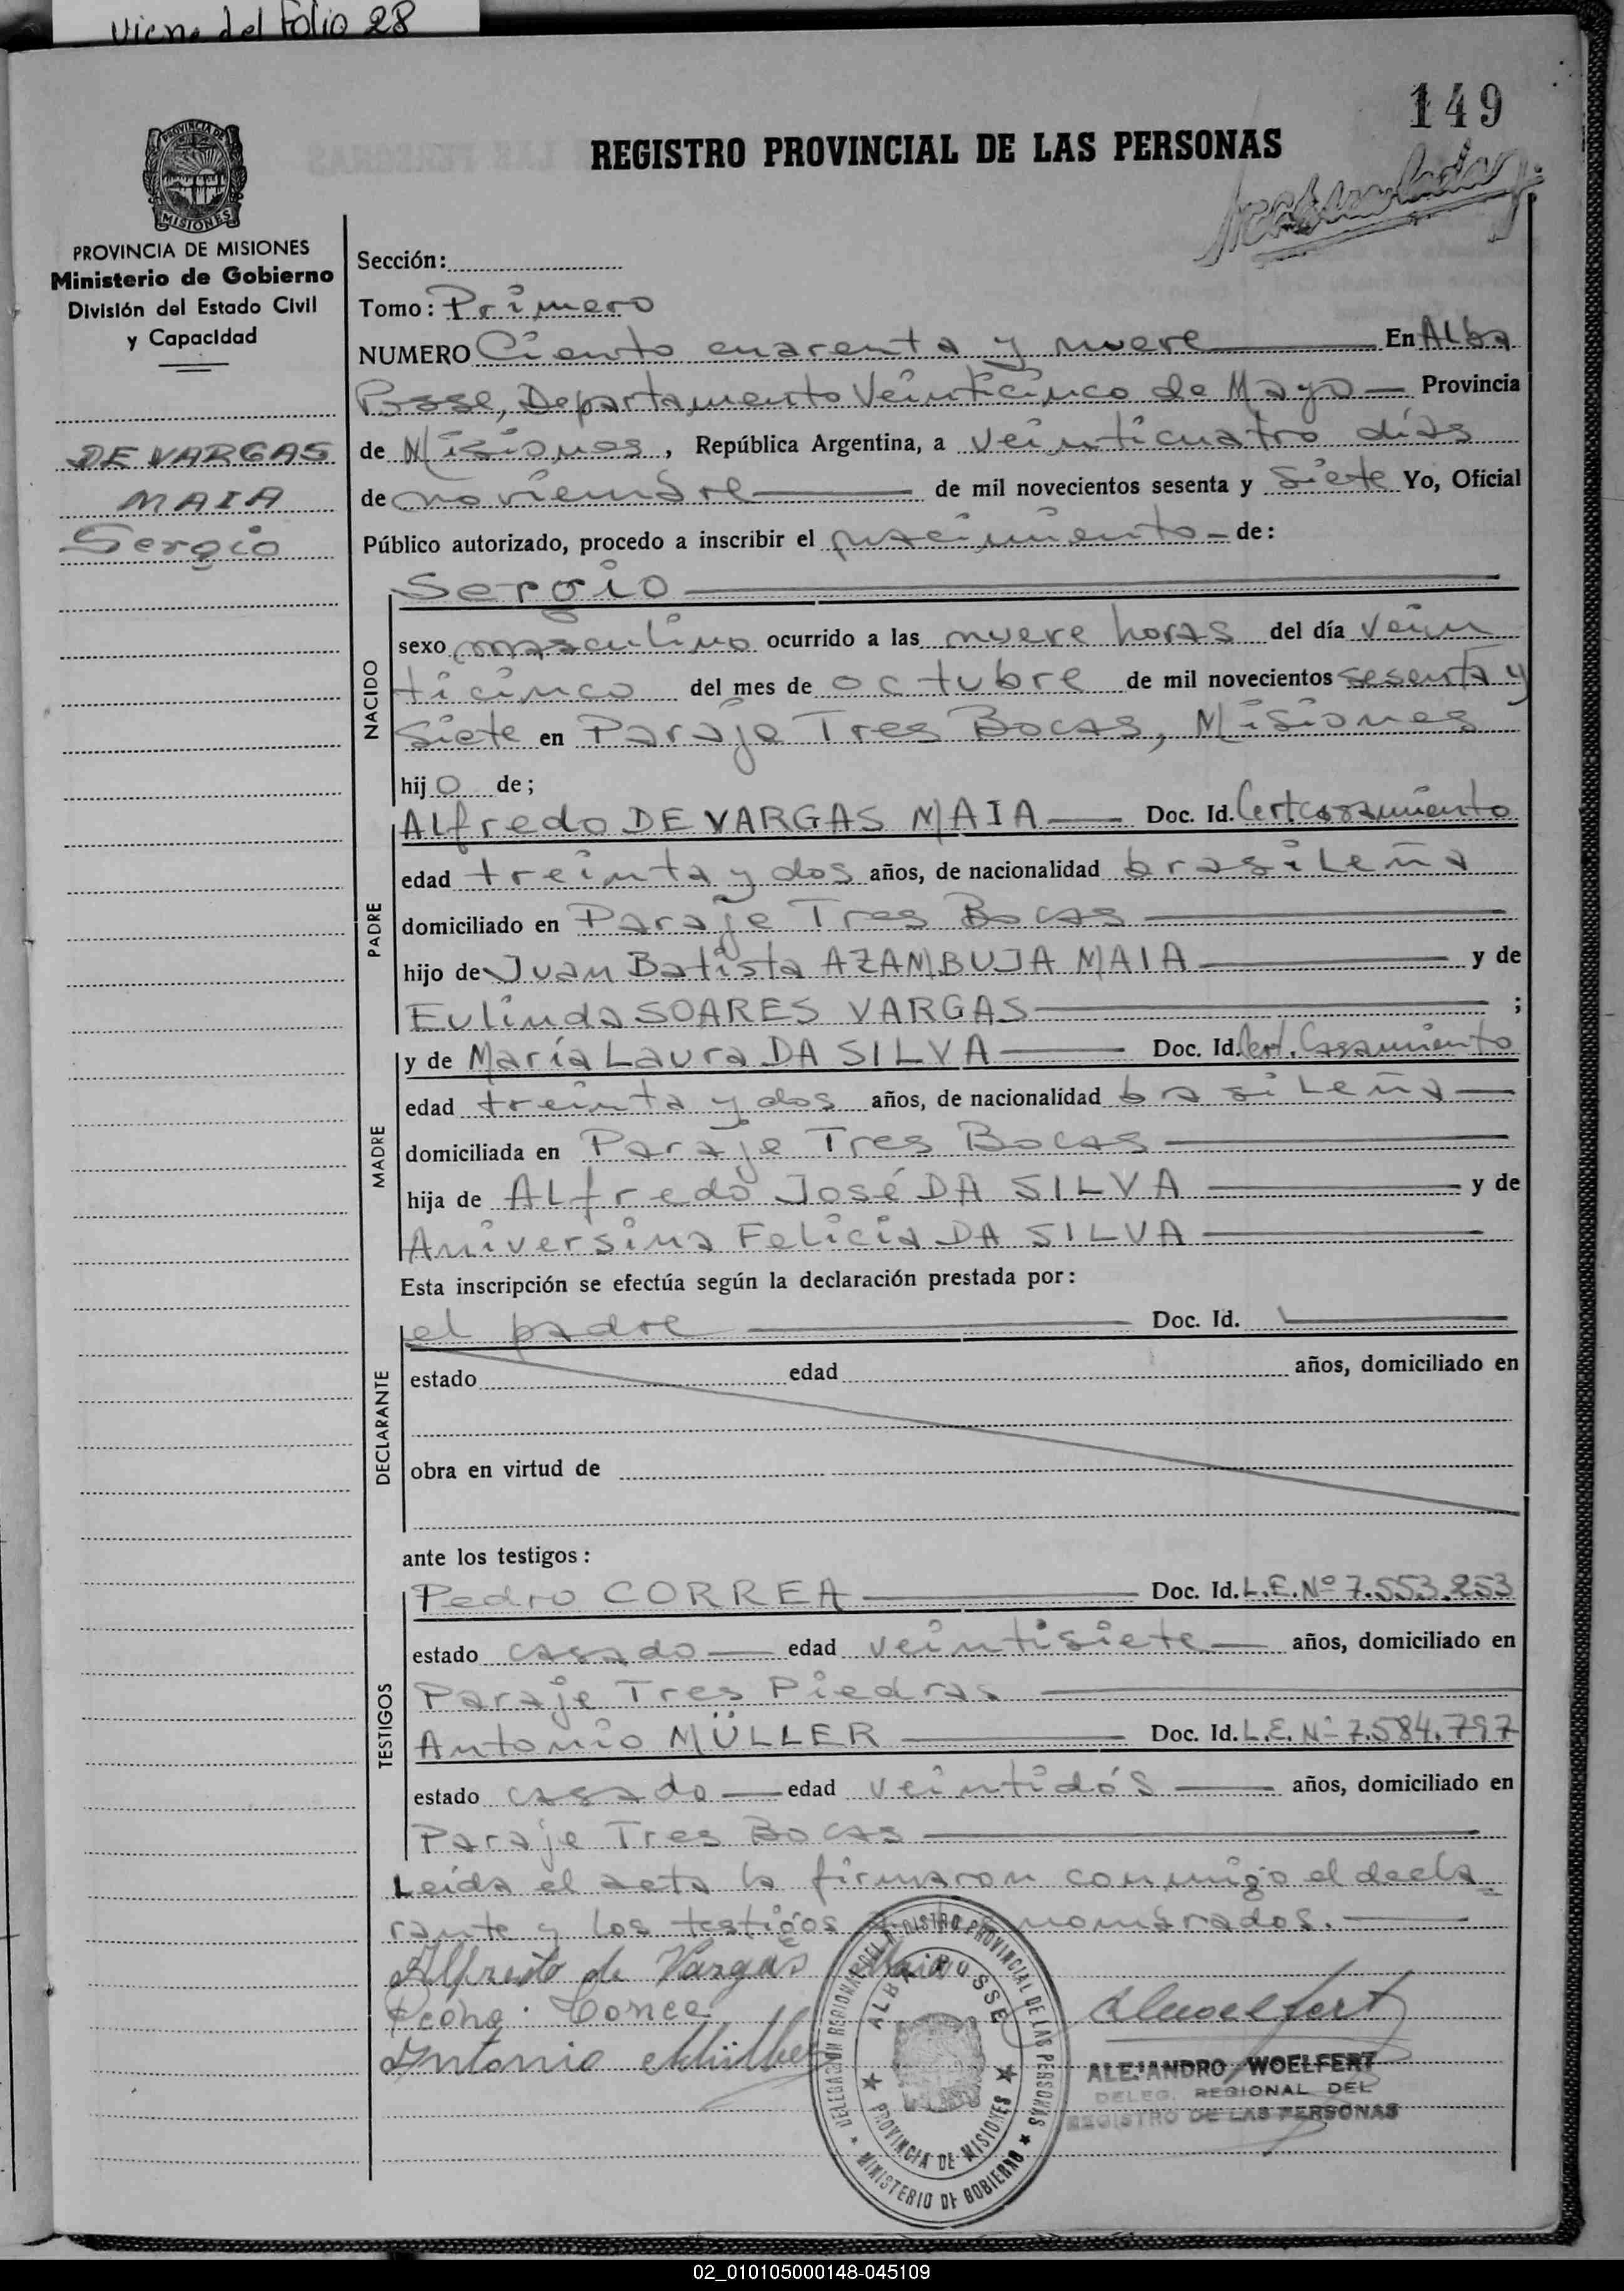 Viene del Folio 28
149
REGISTRO PROVINCIAL DE LAS PERSONAS
PROVINCIA DE
MISIONES
PROVINCIA DE MISIONES
Ministerio de Gobierno
División del Estado Civil
y Capacidad
DE VARGAS
MAIA
Sergio
Sección:
Tomo: Primero
NUMERO Ciento cuarenta y nueve En Alba
Posse, Departamento Veinticinco de Mayo — Provincia
de Misiones, República Argentina, a veinticuatro días
de noviembre de mil novecientos sesenta y siete Yo, Oficial
Público autorizado, procedo a inscribir el nacimiento — de:
NACIDO
Sergio
sexo masculino ocurrido a las nueve horas del día vein
ticinco del mes de octubre de mil novecientos sesenta y
siete en Paraje Tres Bocas, Misiones
hijo de;
PADRE
Alfredo DE VARGAS MAIA — Doc. Id. Cert casamiento
edad treinta y dos años, de nacionalidad brasileña
domiciliado en Paraje Tres Bocas
hijo de Juan Batista AZAMBUJA MAIA y de
Eulinda SOARES VARGAS ;
MADRE
y de María Laura DA SILVA — Doc. Id. Cert. Casamiento
edad treinta y dos años, de nacionalidad brasileña —
domiciliada en Paraje Tres Bocas
hija de Alfredo José DA SILVA y de
Aniversina Felicia DA SILVA
Esta inscripción se efectúa según la declaración prestada por:
DECLARANTE
el padre Doc. Id.
estado edad años, domiciliado en
obra en virtud de
ante los testigos:
TESTIGOS
Pedro CORREA Doc. Id. L.E. Nº 7.553.253
estado casado — edad veintisiete — años, domiciliado en
Paraje Tres Piedras
Antonio MÜLLER Doc. Id. L.E. Nº 7.584.797
estado casado — edad veintidós — años, domiciliado en
Paraje Tres Bocas
Leída el acta la firmaron conmigo el decla=
rante y los testigos nombrados. —
Alfredo de Vargas Maia
Pedro Correa
Antonio Müller
DELEGACION REGIONAL DEL REGISTRO PROVINCIAL DE LAS PERSONAS
ALBA POSSE
PROVINCIA DE MISIONES
MINISTERIO DE GOBIERNO
ALEJANDRO WOELFERT
DELEG. REGIONAL DEL
REGISTRO DE LAS PERSONAS
02_010105000148-045109